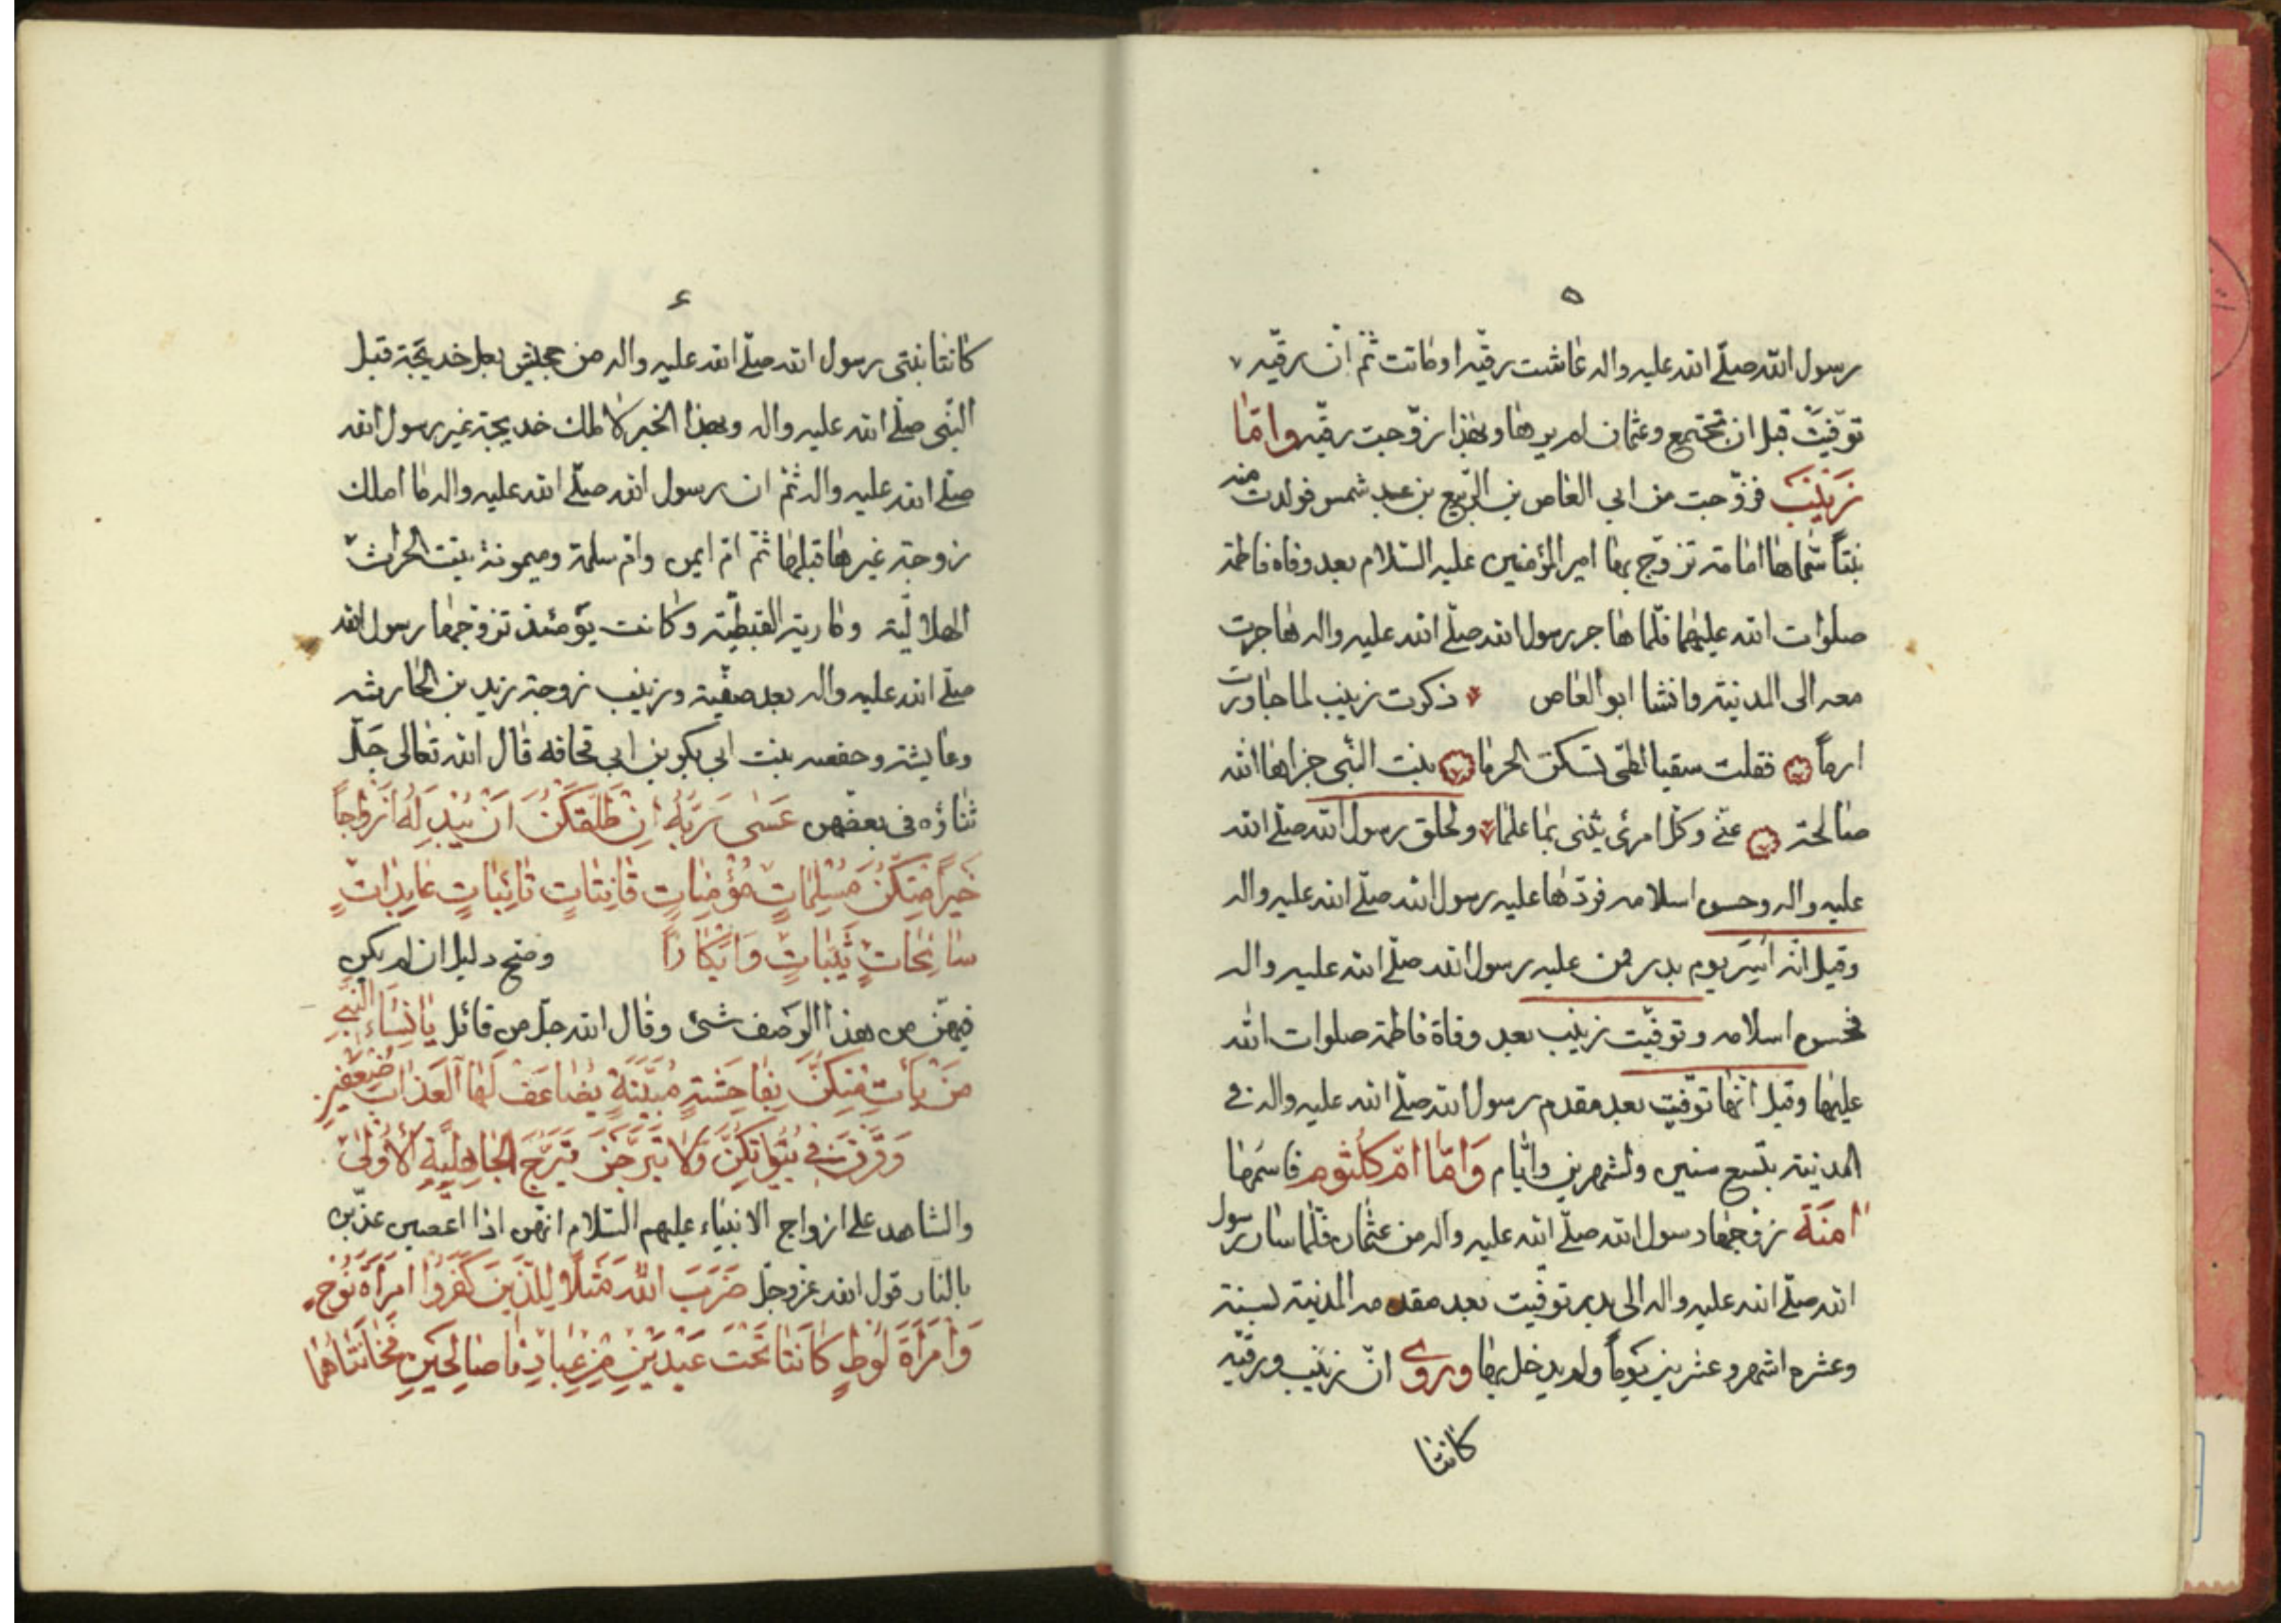 ٥
رسول الله صلّى الله عليه واله عاشت رقيّه او ماتت ثمّ انّ رقيّه
توّفيت قبل ان تجتمع وعثمان لم يرها وبهذا زوّجت رقيّه وامّا
زَيْنَبَ فزوّجت من ابي العاص بن الرّبيع بن عبد شمس فولدت منه
بنتاً سمّاها امامة تزوّج بها امير المؤمنين عليه السّلام بعد وفاه فاطمة
صلوات الله عليهما فلمّا هاجر رسول الله صلّى الله عليه واله هاجرت
معه الى المدينة وانشا ابو العاص ذكرت زينب لما جاورت
ارماً فقلت سقيا لشخص يسكن الحرما بنت النّبي جزاها الله
صالحة عنّي وكلّ امرئ يثنى بما علما ولحلق رسول الله صلّى الله
عليه واله وحسن اسلامه فردّها عليه رسول الله صلّى الله عليه واله
وقيل انّه اسِرَ يوم بدر فمن عليه رسول الله صلّى الله عليه واله
فحسن اسلامه وتوفّيت زينب بعد وفاة فاطمة صلوات الله
عليها وقيل انّها توّفيت بعد مقدم رسول الله صلّى الله عليه واله في
المدينة بتسع سنين وشهرين وايّام وَامّا امّ كلثوم فاسمها
امنَة زوّجها رسول الله صلّى الله عليه واله من عثمان فلّما سار رسول
الله صلّى الله عليه واله الى بدر توفّيت بعد مقدمه المدينة لسنة
وعشره اشهر وعشرين يوماً ولم يدخل بها وروي انّ زينب ورقيّه
كانتا
٤
كانتا بنتى رسول الله صلّى الله عليه واله من جحش بعل خديجة قبل
النّبى صلّى الله عليه واله وبهذا الخبر لا ملك خديجة غير رسول الله
صلّى الله عليه واله ثمّ ان رسول الله صلّى الله عليه واله ما املك
زوجة غيرها قبلها ثمّ امّ ايمن وامّ سلمة وميمونة بنت الحراث
الهلاليّة وماريّة القبطيّه وكانت يومئذ تزوّجها رسول الله
صلّى الله عليه واله بعد صفّية وزينب زوجة زيد بن الحارثه
وعايشة وحفصه بنت ابي بكر بن ابي قحافه قال الله تعالى جَلّ
ثناؤه فى بعضهن عَسٰى رَبُّهُ اِنْ طَلَّقَكُنَّ اَنْ يُبْدِلَهُ اَزْواجاً
خَيْراً مِنْكُنَّ مُسْلِمٰاتٍ مُؤْمِناتٍ قٰانِتٰاتٍ تٰائِبٰاتٍ عٰابِدٰاتٍ
سٰائِحٰاتٍ ثَيِّبٰاتٍ وَاَبْكٰاراً وضح دليل ان لم يكن
فيهنّ من هذا الوَصف شئ وقال الله جلّ من قائل يٰا نِسٰاءَ النَّبِيِّ
مَنْ يَأْتِ مِنْكُنَّ بِفٰاحِشَةٍ مُبَيِّنَةٍ يُضٰاعَفْ لَهَا الْعَذٰابُ ضِعْفَيْنِ
وَقَرْنَ في بُيُوتِكُنَّ وَلا تَبَرَّجْنَ تَبَرُّجَ الْجٰاهِلِيَّةِ الْأُولىٰ
والشاهد على ازواج الانبياء عليهم السّلام انّهن اذا اعصين عذّبن
بالنار قول الله عزوجّل ضَرَبَ اللهُ مَثَلاً لِلَّذينَ كَفَرُوا امْرَأَةَ نُوحٍ
وَامْرَأَةَ لُوطٍ كٰانَتٰا تَحْتَ عَبْدَيْنِ مِنْ عِبادِنٰا صٰالِحَيْنِ فَخٰانَتٰاهُمٰا